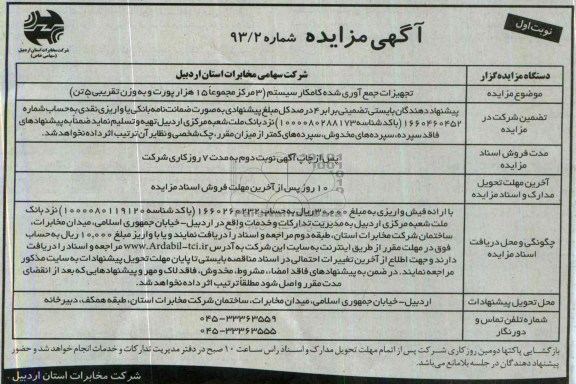 نوبت اول
آگهی مزایده شماره ۹۳/۲
شرکت مخابرات استان اردبیل
(سهامی خاص)
دستگاه مزایده گزار
شرکت سهامی مخابرات استان اردبیل
موضوع مزایده
تجهیزات جمع آوری شده کامکار سیستم (۳ مرکز مجموعا ۱۵ هزار پورت و به وزن تقریبی ۵ تن)
تضمین شرکت در
مزایده
پیشنهاد دهندگان بایستی تضمینی برابر ۴ درصد کل مبلغ پیشنهادی به صورت ضمانت نامه بانکی یا واریزی نقدی به حساب شماره
۱۶۶۰۴۶۰۴۵۲ (با کد شناسه ۱۰۰۰۰۸۰۲۸۸۱۷۳) نزد بانک ملت شعبه مرکزی اردبیل تهیه و تسلیم نماید ضمنا به پیشنهادهای
فاقد سپرده، سپرده های مخدوش، سپرده های کمتر از میزان مقرر، چک شخصی و نظایر آن ترتیب اثر داده نخواهد شد.
مدت فروش اسناد
مزایده
پس از چاپ آگهی نوبت دوم به مدت ۷ روز کاری شرکت
آخرین مهلت تحویل
مدارک و اسناد مزایده
۱۰ روز پس از آخرین مهلت فروش اسناد مزایده
چگونگی و محل دریافت
اسناد مزایده
با ارائه فیش واریزی به مبلغ ۳۰۰,۰۰۰ ریال به حساب ۱۶۶۰۲۶۰۲۳۲ (با کد شناسه ۱۰۰۰۰۸۰۱۱۹۱۲۰) نزد بانک
ملت شعبه مرکزی اردبیل به مدیریت تدارکات و خدمات واقع در اردبیل- خیابان جمهوری اسلامی، میدان مخابرات،
ساختمان شرکت مخابرات استان، طبقه دوم مراجعه و اسناد را دریافت نمایند و یا با واریز مبلغ ۱۰,۰۰۰ ریال به حساب
فوق در مهلت مقرر از طریق اینترنت به سایت این شرکت به آدرس www.Ardabil-tci.ir مراجعه و اسناد را دریافت
دارند و جهت اطلاع از آخرین تغییرات احتمالی در اسناد مناقصه بایستی تا پایان مهلت تحویل پیشنهادات به سایت مذکور
مراجعه نمایند. در ضمن به پیشنهادهای فاقد امضا، مشروط، مخدوش، فاقد لاک و مهر و پیشنهادهایی که بعد از انقضای
مدت مقرر واصل شود مطلقا ترتیب اثر داده نخواهد شد.
محل تحویل پیشنهادات
اردبیل- خیابان جمهوری اسلامی، میدان مخابرات، ساختمان شرکت مخابرات استان، طبقه همکف، دبیرخانه
شماره تلفن تماس و
دورنگار
۰۴۵-۳۳۳۶۳۵۵۹
۰۴۵-۳۳۳۶۳۵۵۵
بازگشایی پاکتها دومین روز کاری شرکت پس از اتمام مهلت تحویل مدارک و اسناد راس ساعت ۱۰ صبح در دفتر مدیریت تدارکات و خدمات انجام خواهد شد و حضور
پیشنهاد دهندگان در جلسه بلامانع می باشد.
شرکت مخابرات استان اردبیل